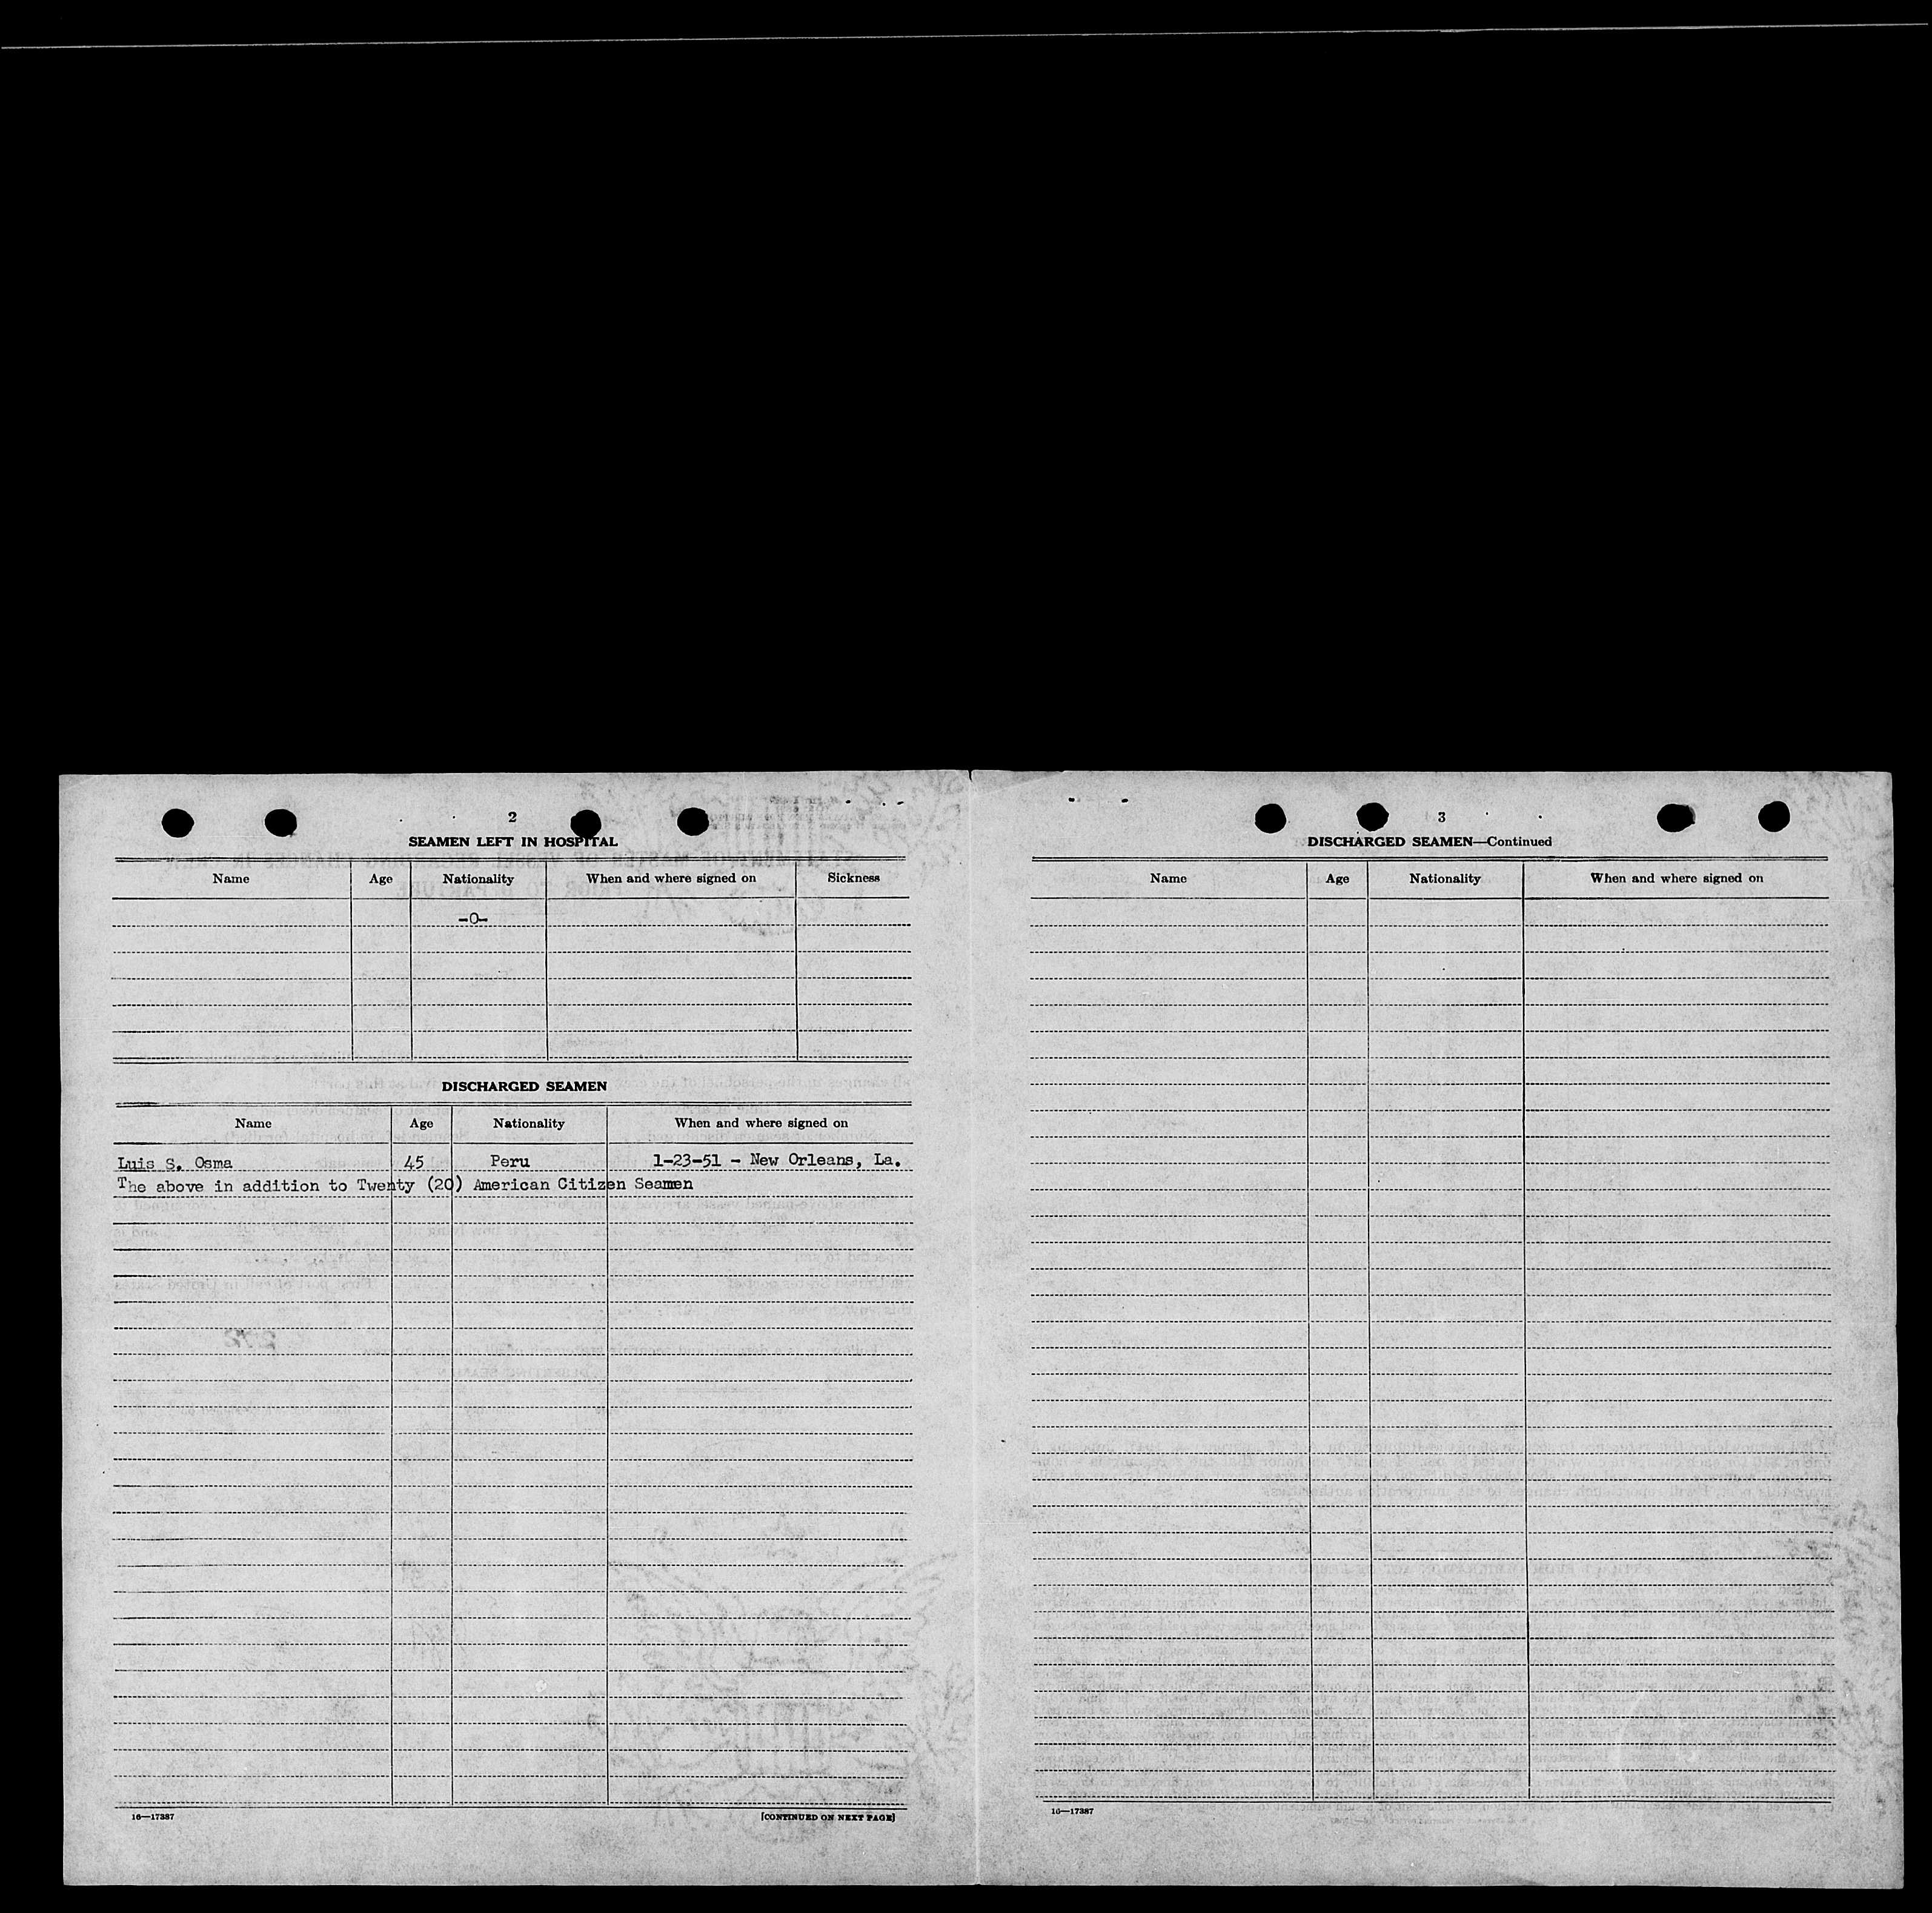 2
SEAMEN LEFT IN HOSPITAL
Name Age Nationality When and where signed on Sickness
-0-
DISCHARGED SEAMEN
Name Age Nationality When and where signed on
Luis S. Osma 45 Peru 1-23-51 - New Orleans, La.
The above in addition to Twenty (20) American Citizen Seamen
16—17387 [CONTINUED ON NEXT PAGE]
3
DISCHARGED SEAMEN—Continued
Name Age Nationality When and where signed on
16—17387